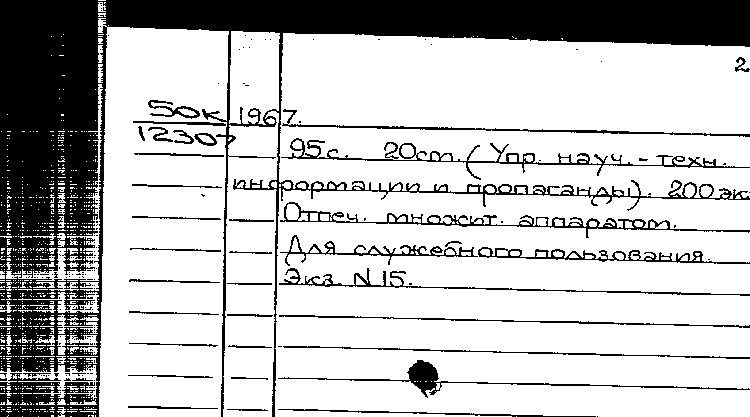 2
50К 1967.
12307
95с. 20см. (Упр. науч.-техн.
информации и пропаганды). 200 эк
Отпеч. множит. аппаратом.
Для служебного пользования.
Экз. N 15.